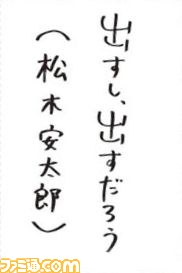 出すし、出すだろう
（松木安太郎）
ファミ通.com